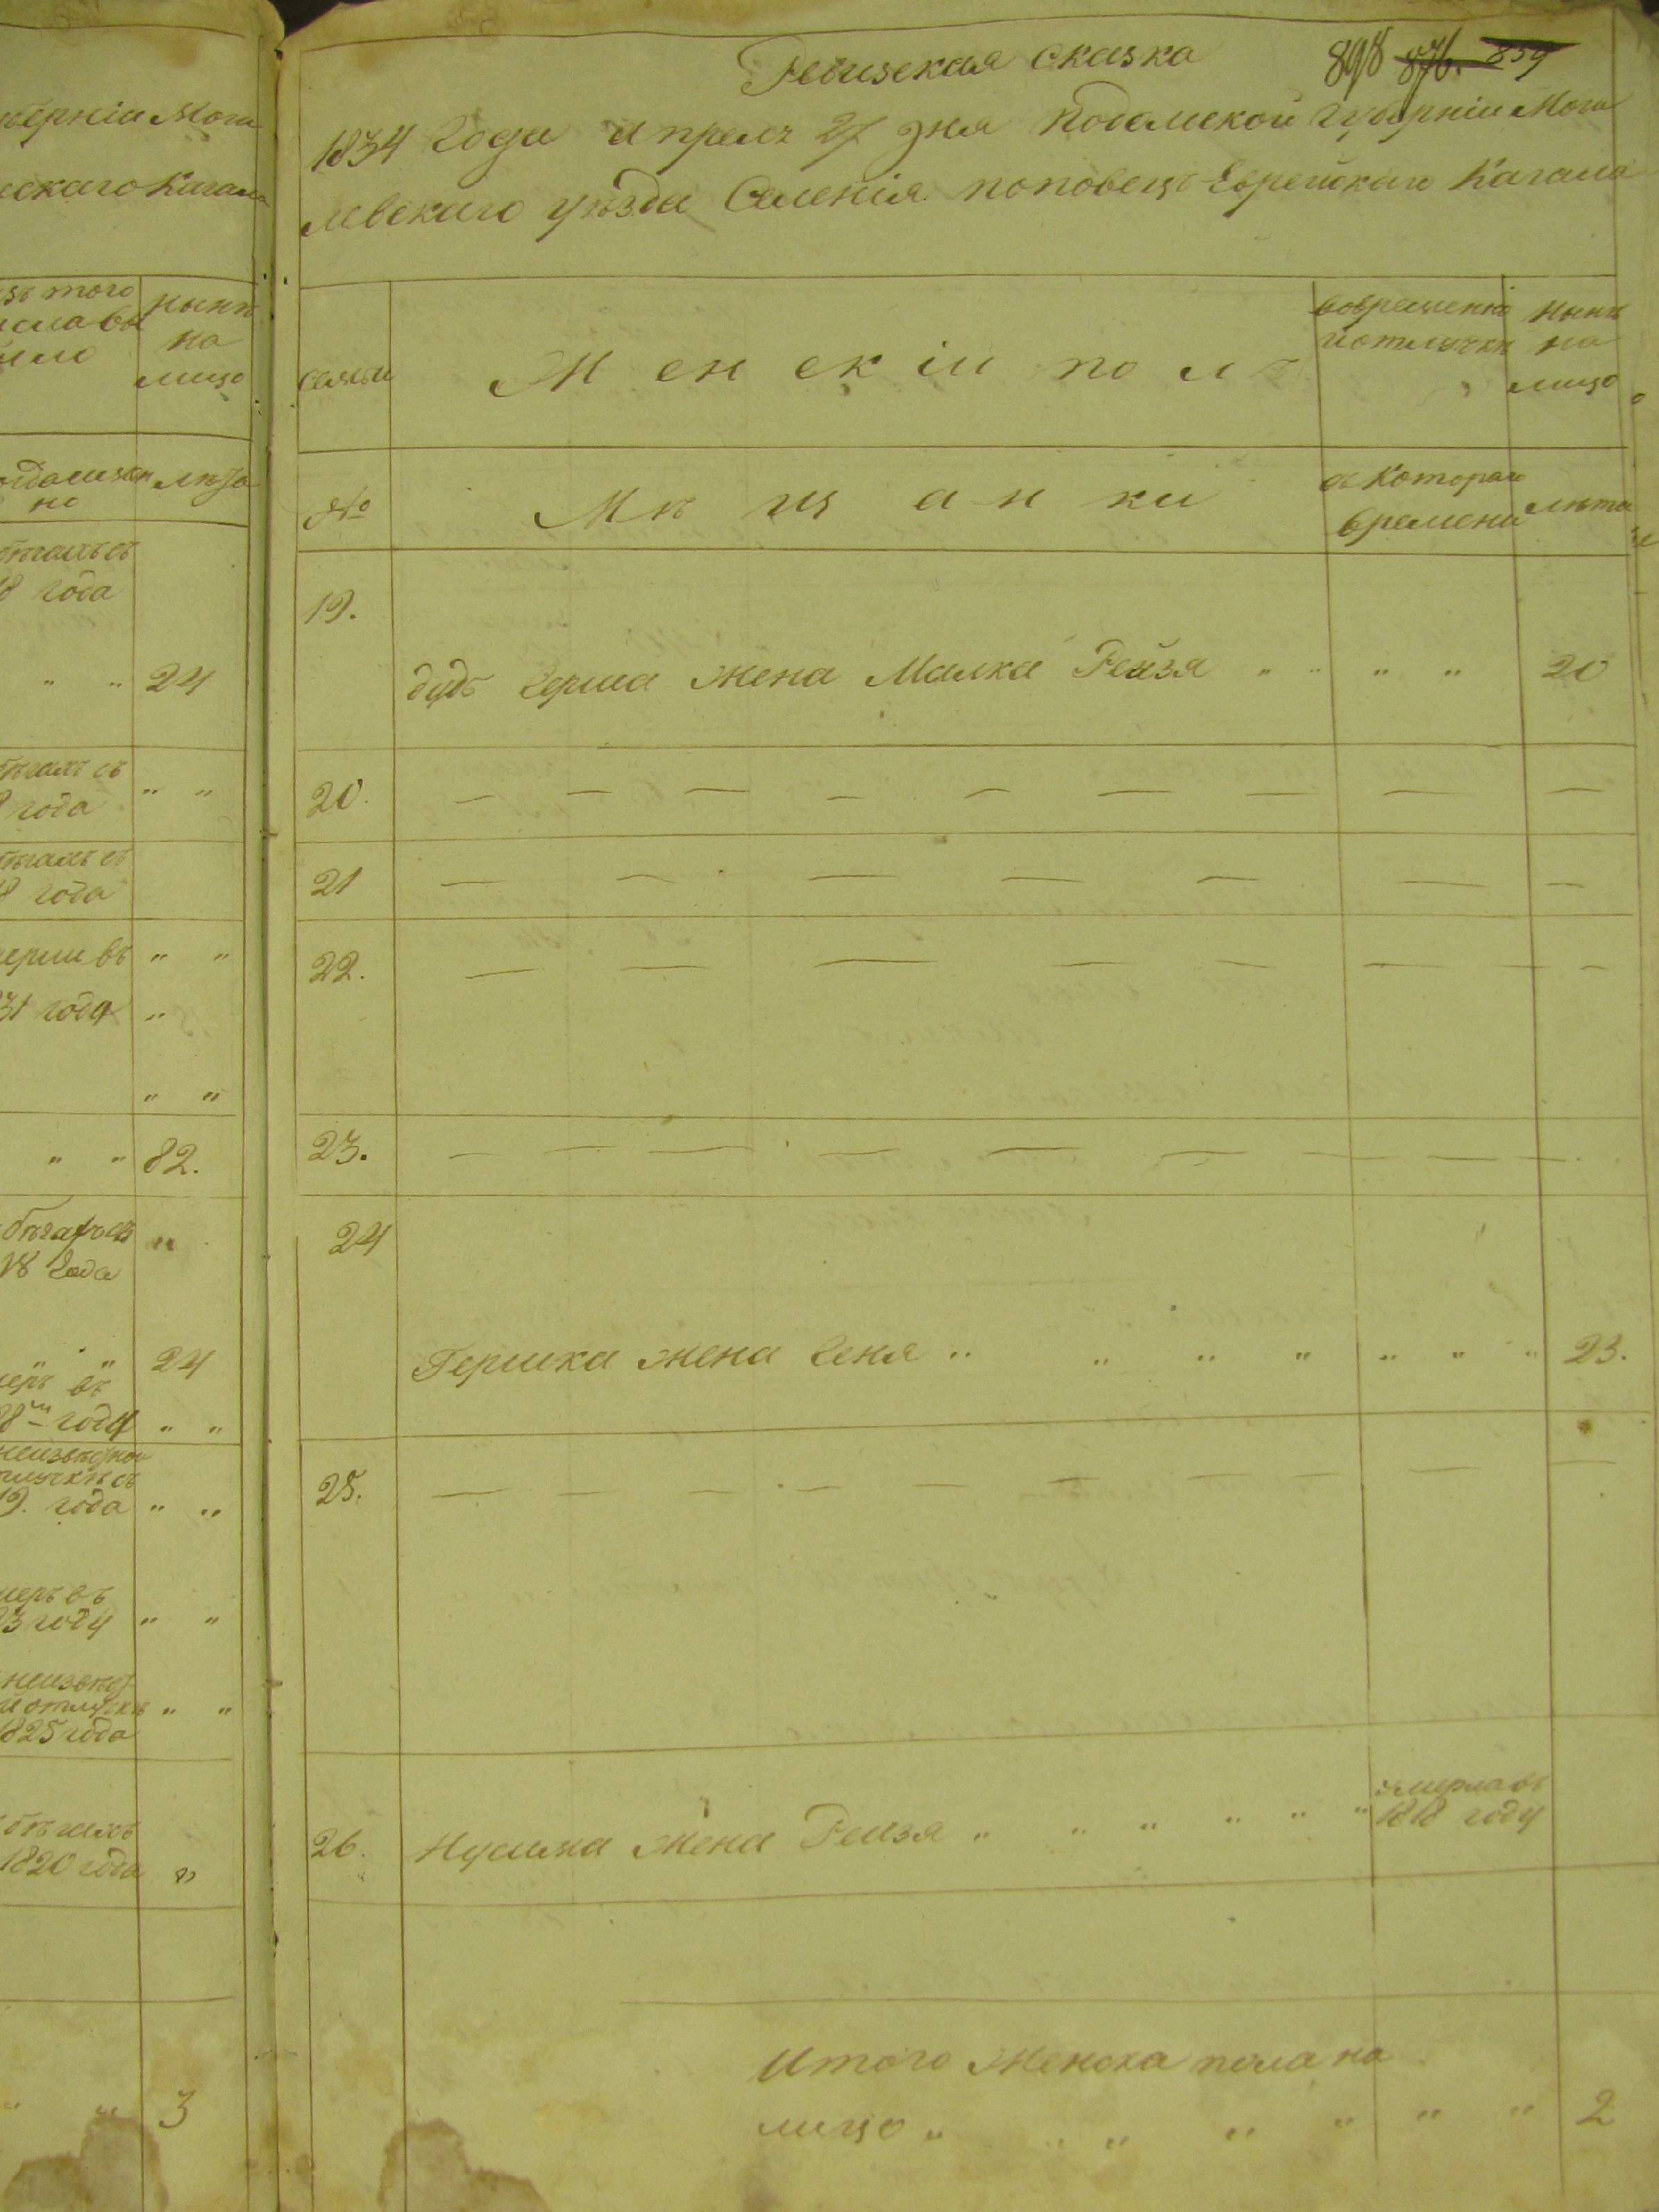 берніи Моги
скаго Кагала
изъ того
числа вы
было
нынѣ
на
лицо
лѣта
но
бѣгахъ съ
18 года
" " 24
бѣгахъ съ
8 года " "
бѣгахъ съ
18 года
мерли въ " "
31 году "
" "
" " 82.
бѣгахъ съ "
18 года
" " 24
меръ въ
28го году " "
неизвѣстной
отлучкѣ съ
19. года " "
меръ въ
23 году " "
неизвѣст
й отлучкѣ " "
1825 года
бѣгахъ
1820 года "
" " 3
Ревизская сказка
898 876. 859
1834 Года апреля 27 дня Подольской Губерніи Моги
левскаго уѣзда Селенія поповецъ Еврейскаго Кагала
семьи
Женскій полъ
вовременно
й отлучкѣ
нынѣ
на
лицо
№
Мѣщанки
съ Котораго
времени
лѣта
19.
дудъ Герша Жена Малка Рейзя " " " " 20
20. — — — — — — — — —
21 — — — — — — —
22. — — — — — — — —
23. — — — — — — — — —
24
Гершка жена Геня " " " " " " " 23.
25. — — — — — — — —
умерла въ
26. Нусима жена Реизя " " " " " " 1818 году
Итого Женска пола на
лицо " " " " " " " 2